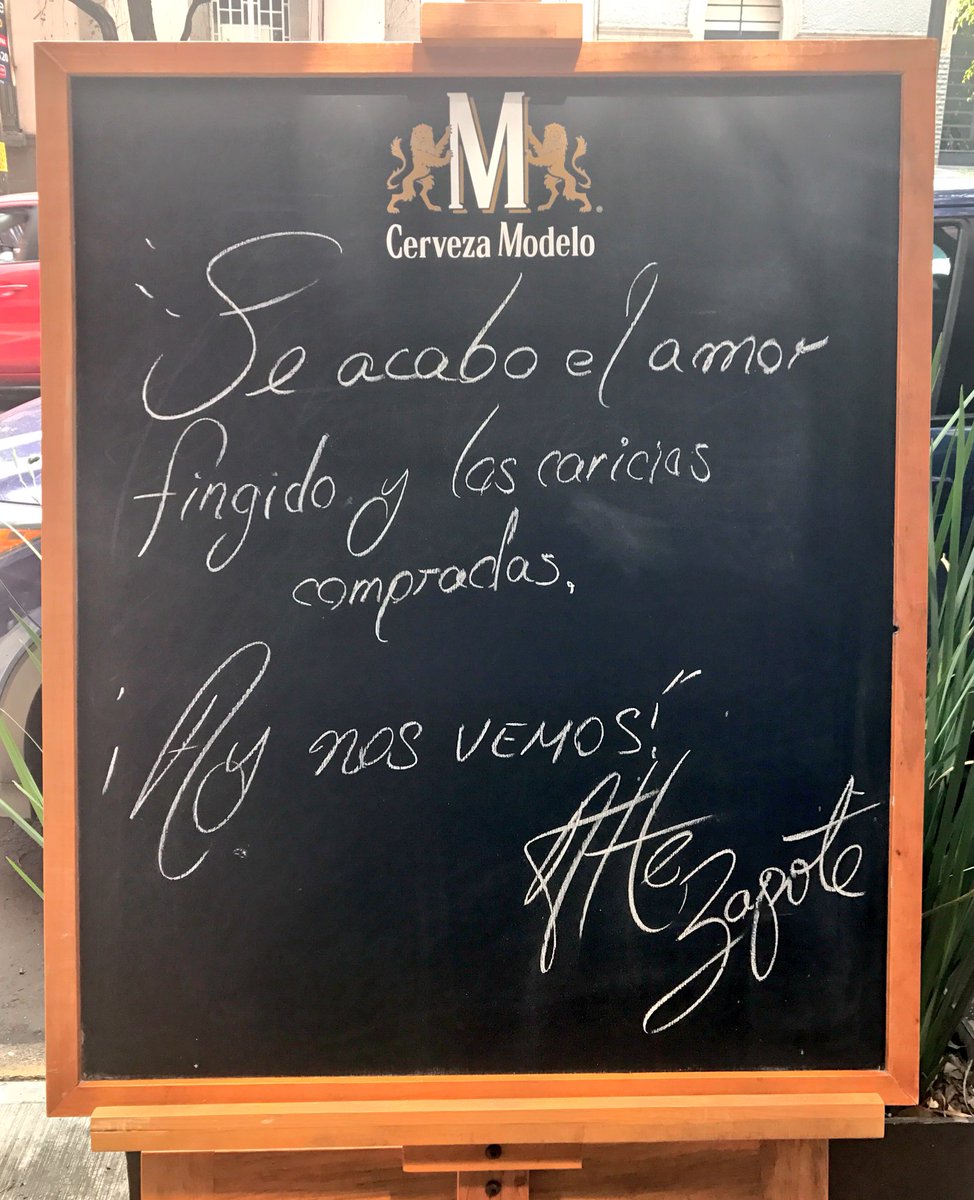 M
Cerveza Modelo
"¡Se acabo el amor
fingido y las caricias
compradas.
¡Ay nos vemos!"
Atte. Zapote